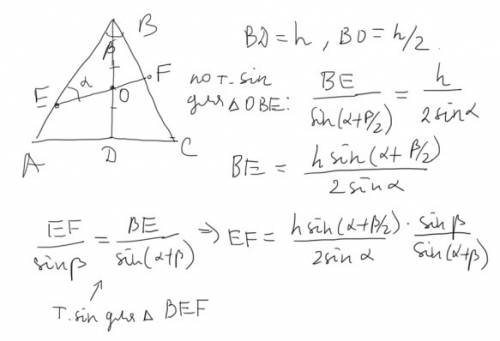 B
β
E α F
O
A D C
BD = h , BO = h/2.
по т. sin
для Δ OBE: BE / sin(α+β/2) = h / 2sinα
BE = h sin(α+β/2) / 2 sinα
EF / sinβ = BE / sin(α+β) ⇒ EF = h sin(α+β/2) / 2sinα · sinβ / sin(α+β)
Т. sin для Δ BEF